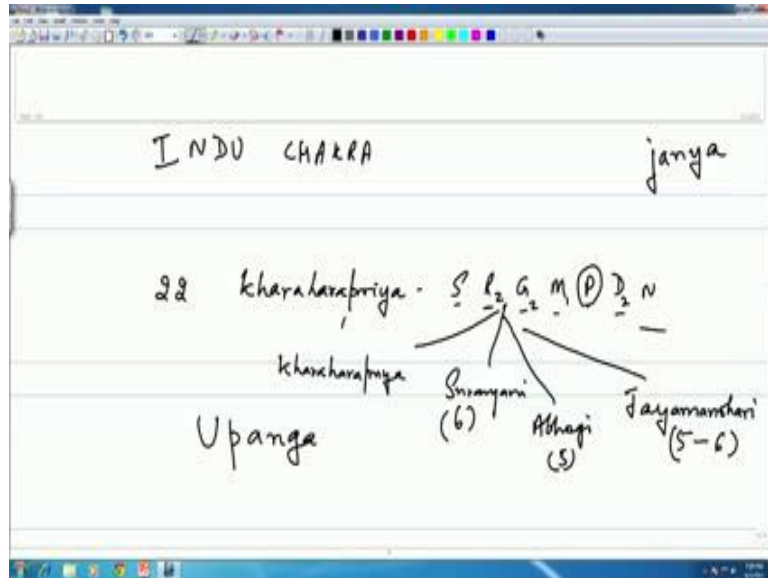 INDU CHAKRA janya
22 Kharaharapriya - S R2 G2 M P D2 N
Kharaharapriya
Sriranjani Abhogi Jayamanohari
(6) (5) (5-6)
Upanga